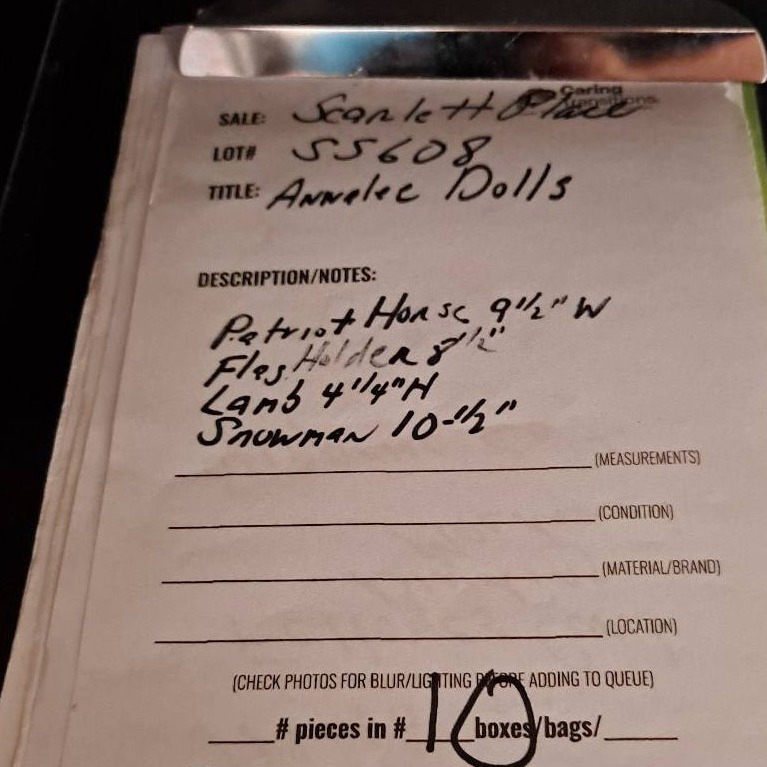 Caring
Transitions
SALE: Scarlett Place
LOT# SS608
TITLE: Annalee Dolls
DESCRIPTION/NOTES:
Patriot Horse 9 1/2" W
Flag Holder 8 1/2"
Lamb 4 1/4" H
Snowman 10-1/2"
(MEASUREMENTS)
(CONDITION)
(MATERIAL/BRAND)
(LOCATION)
(CHECK PHOTOS FOR BLUR/LIGHTING BEFORE ADDING TO QUEUE)
# pieces in # 10 boxes/bags/